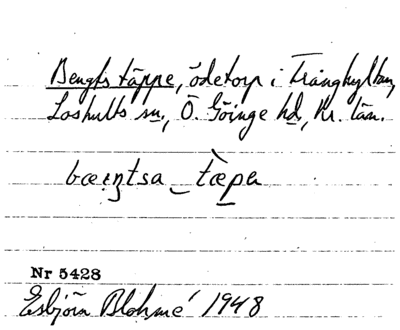 Bengts täppe, ödetorp i Trånghyltan,
Loshults sn., Ö. Göinge hd, Kr. län.
bæŋtsa _ tæpa
Nr 5428
Esbjörn Blohmé 1948